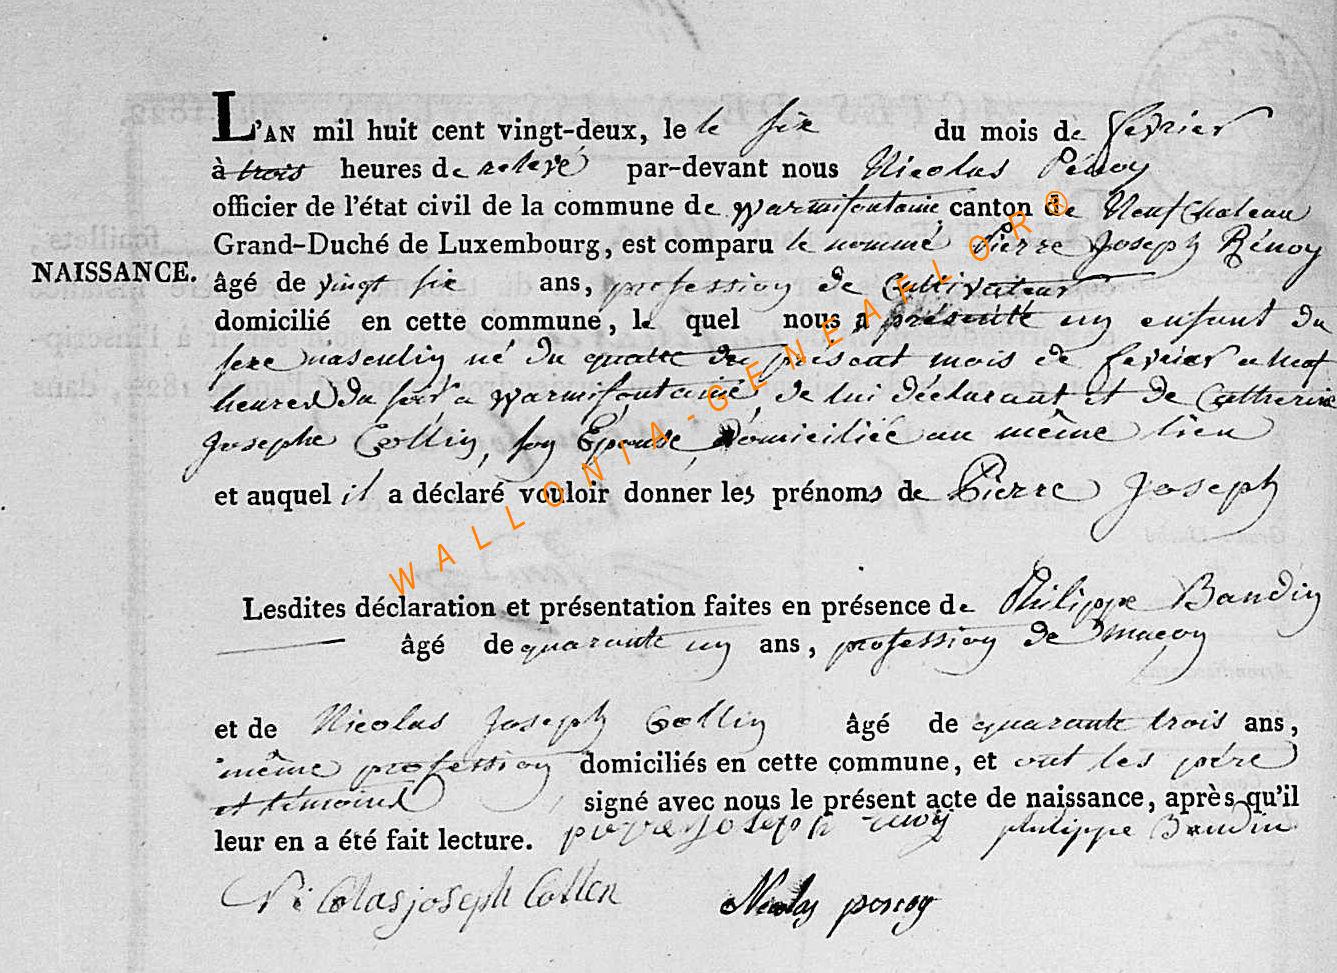 L'AN mil huit cent vingt-deux, le le six du mois de fevrier
à trois heures de relevé par-devant nous Nicolas Pénoy
officier de l'état civil de la commune de Warmifontaine canton de Neufchateau
Grand-Duché de Luxembourg, est comparu le nommé Pierre Joseph Pénoy
NAISSANCE.
âgé de vingt six ans, profession de Cultivateur
domicilié en cette commune, le quel nous a présenté un enfant du
sexe masculin né du quatre du présent mois de fevrier a
heures du soir a Warmifontaine de lui déclarant et de Catherine
Josephe Collin, son Epouse, domiciliée au même lieu
et auquel il a déclaré vouloir donner les prénoms de Pierre Joseph
Lesdites déclaration et présentation faites en présence de Philippe Baudin
âgé de quarante un ans, profession de maçon
et de Nicolas Joseph Collin âgé de quarante trois ans,
même profession domiciliés en cette commune, et ont les père
et témoins signé avec nous le présent acte de naissance, après qu'il
leur en a été fait lecture. pierre joseph philippe Baudin
Nicolas joseph Collen Nicolas penoy
WALLONIA-GENEAFLOR®